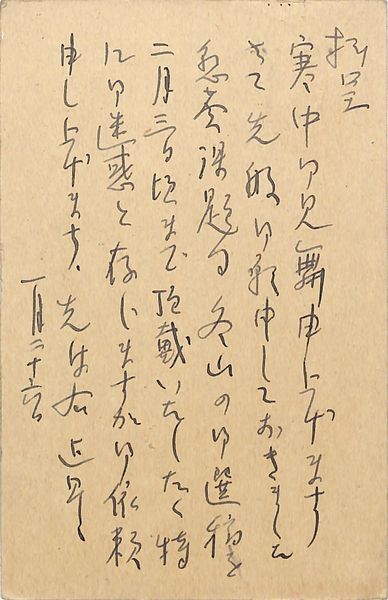 拝呈
寒中御見舞申上げます
さて先般御願申しておきました
愚妻課題句 冬山の御選稿を
二月三日頃まで頂戴いたしたく特
に御迷惑と存じますが御依頼
申し上げます、先は右迄 早々
一月二十六日